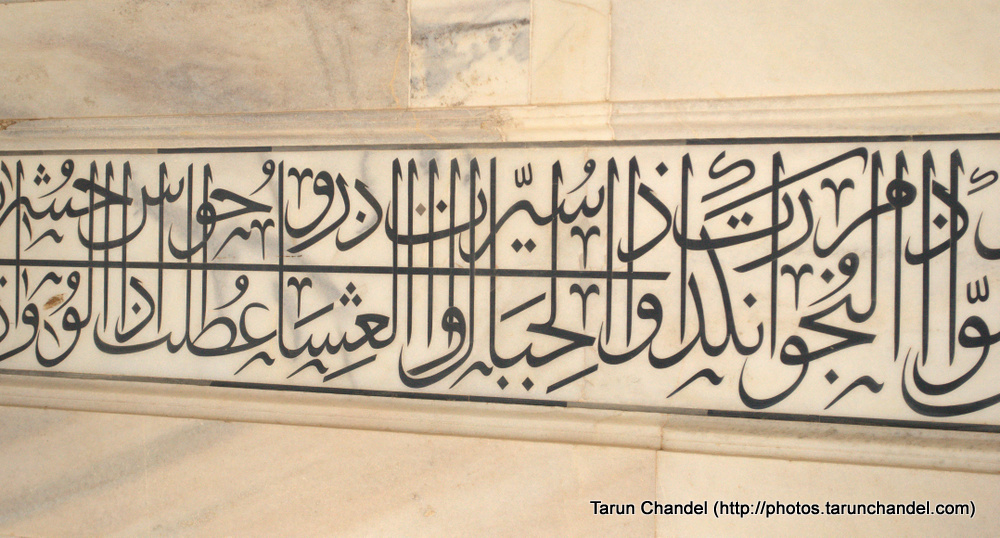 وإذا النجوم انكدرت وإذا الجبال سيرت وإذا العشار عطلت وإذا الوحوش حشرت
Tarun Chandel (http://photos.tarunchandel.com)